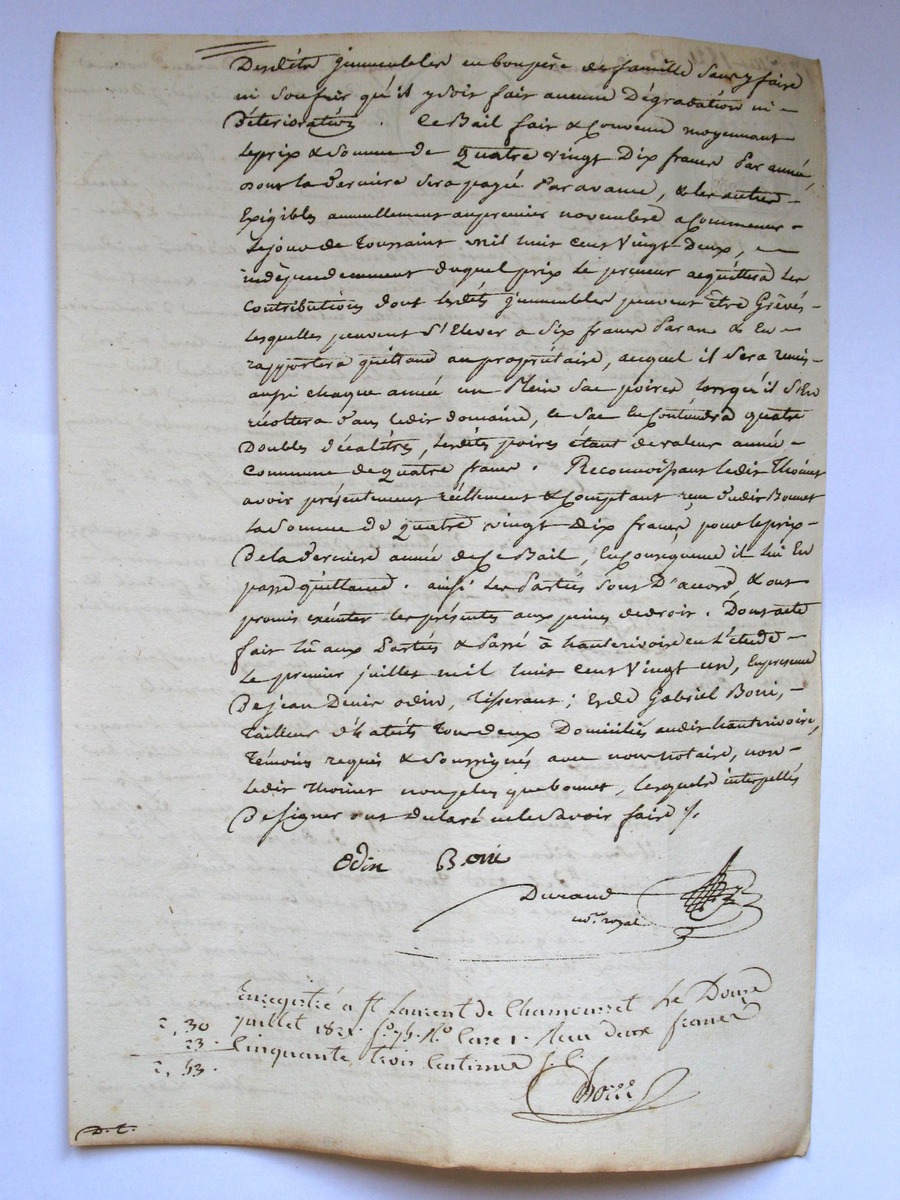 Desdits jmmeubles en bon père de famille sans y faire
ni soufrir qu'il y soit fait aucune Dégradation ni
Déterioration. Ce Bail fait & Convenu moyennant
le prix & Somme de Quatre vingt Dix francs Par année,
dont la derniere sera payée Par avance, & les autres
Exigibles annuellement au premier novembre a Commencer
le jour de Toussaint mil huit cent Vingt Deux,
indépendemment duquel prix le preneur acquittera les
Contributions dont lesdits jmmeubles peuvent être Grévés
lesquelles peuvent S'Elever a Six francs Par an & En
rapportera quittance au propriétaire, auquel il sera remis
aussi chaque année un Plein sac poires lorsqu'il S'En
récoltera dans ledit domaine, le sac En Contiendra quatre
Doubles Décalitres, lesdits poires étant de valeur année
Commune de quatre francs. Reconnoissant ledit Thoinet
avoir présentement réellement & Comptant reçu dudit Bonnet
la Somme de quatre vingt dix francs, pour le prix
De la Derniere année de Ce Bail, En Conséquence il lui En
passe quittance. ainsi les Parties sont D'accord & ont
promis exécuter les présentes aux peines de droit. Dont acte
fait lû aux Parties & Passé à hauterivoire en l'étude
le premier juillet mil huit cent Vingt un, En presence
De jean Denis odin, Tisserant; Et de Gabriel Boni,
Tailleur d'habits tous deux Domiciliés audit hauterivoire,
Témoins requis & Soussignés avec nous notaire, non
ledit Thoinet non plus que bonnet, lesquels interpellés
De signer ont declaré ne le savoir faire ./.
Odin Boni
Durand
no.re royal
Enregistré a St Laurent de Chamousset le Douze
juillet 1821. f.o 75. R.o Case 1. Reçu deux francs
Cinquante trois Centimes
2,30
23.
2,53.
D.t.